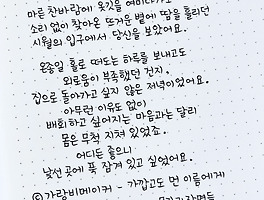 마른 찬바람에 옷깃을 여미다가도
소리 없이 찾아온 뜨거운 볕에 땀을 흘리던
시월의 입구에서 당신을 보았어요.
온종일 홀로 떠도는 하루를 보내고도
외로움이 부족했던 건지.
집으로 돌아가고 싶지 않은 저녁이었어요.
아무런 이유도 없이
배회하고 싶어지는 마음과는 달리
몸은 무척 지쳐 있었죠.
어디든 좋으니
낯선 곳에 푹 잠겨 있고 싶었어요.
ⓒ가랑비메이커 - 가깝고도 먼 이름에게